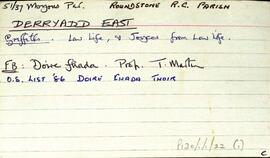 51/37 Moyrus Par. ROUNDSTONE R.C. PARISH
DERRYADD EAST
Griffiths: Law Life, & Joyces from Law Life.
FB: Doire Fhada. Prop. T. Martin
O.S. LIST '86 DOIRE FHADA THOIR
P120/1/1/22 (i)